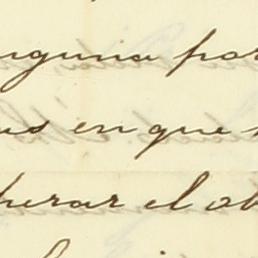 inguna por
us en que
perar el ob